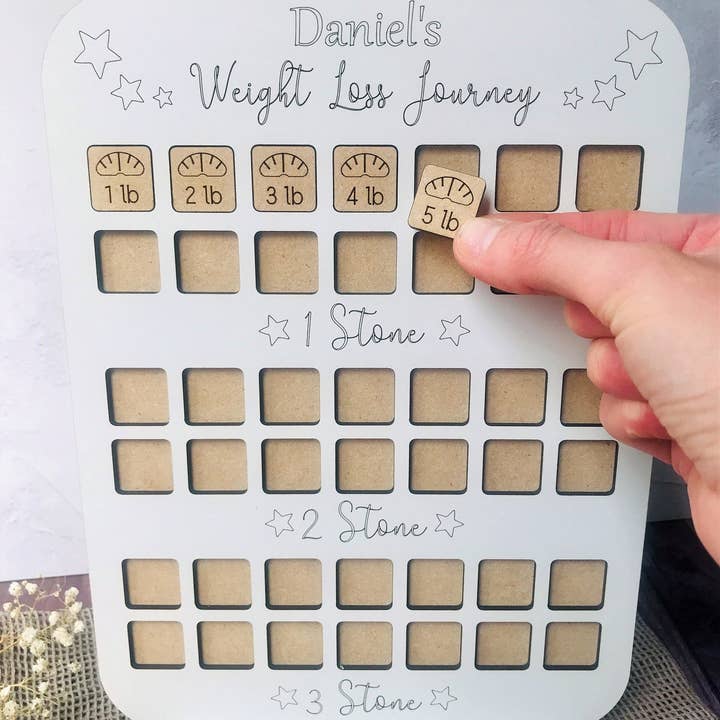 Daniel's
Weight Loss Journey
1 lb 2 lb 3 lb 4 lb
5 lb
1 Stone
2 Stone
3 Stone